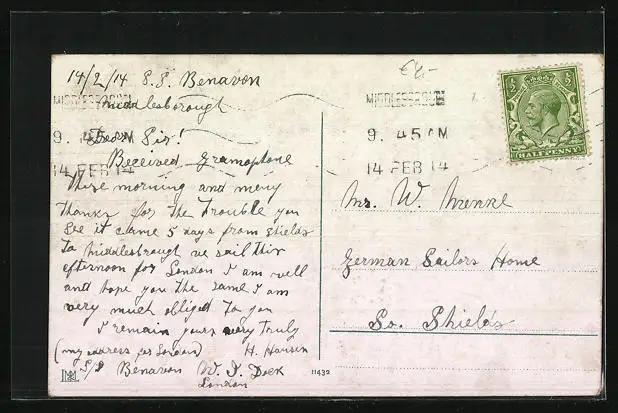 14/2/14 S.S. Benavon
Middlesborough
Dear Sir!
Received Gramophone
these morning and meny
thanks for the trouble you
see it came 5 days from Shields
to Middlesbrough we sail this
afternoon for London I am well
and hope you the same I am
very much obliged to you
I remain yours very truly
(my address for London) H. Hansen
S/S Benavon W. I. Dock
London
11432
£8,-
MIDDLESBROUGH
9. 45 AM
14 FEB 14
MIDDLESBROUGH
9. 45 AM
14 FEB 14
½ ½
HALFPENNY
Mr. W.
German Sailors Home
So. Shields